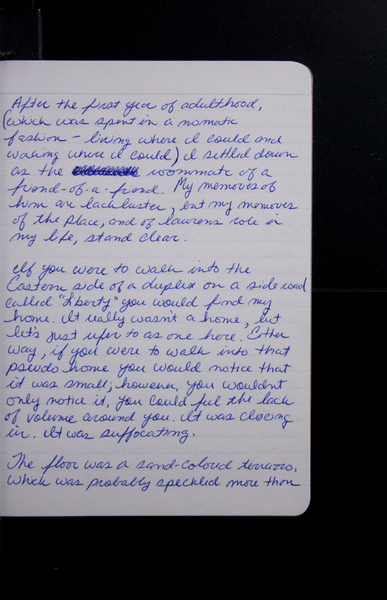 After the first year of adulthood,
(which was spent in a nomatic
fashion – living where I could and
waking where I could) I settled down
as the roommate of a
friend-of-a-friend. My memories of
him are lackluster, but my memories
of the place, and of laurens role in
my life, stand clear.
If you were to walk into the
Eastern side of a duplex on a side road
called "Liberty" you would find my
home. It really wasn't a home, but
let's just refer to as one here. Either
way, if you were to walk into that
pseudo home you would notice that
it was small; however, you wouldn't
only notice it, you could feel the lack
of volume around you. It was closing
in. It was suffocating.
The floor was a sand-colored terrazzo,
which was probably speckled more than